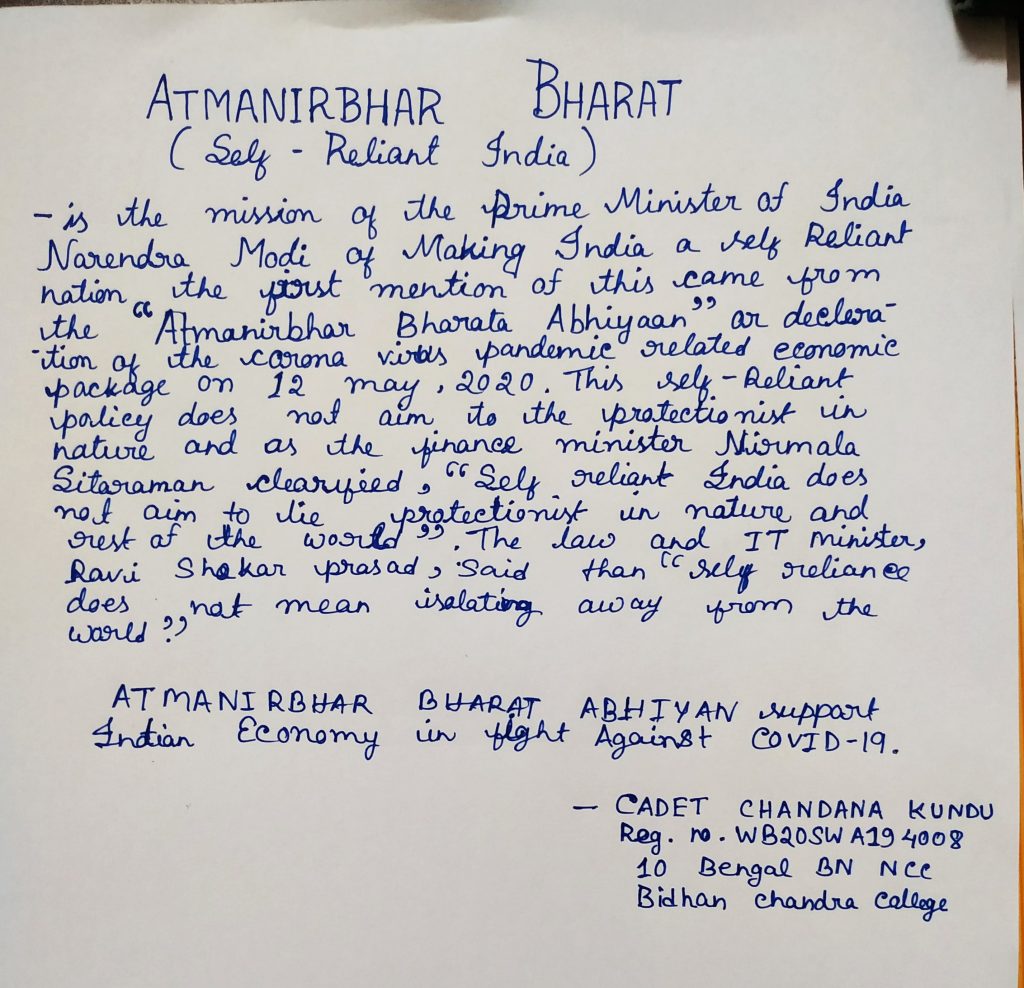 ATMANIRBHAR BHARAT
( Self - Reliant India )
- is the mission of the Prime Minister of India
Narendra Modi of Making India a self Reliant
nation, the first mention of this came from
the “Atmanirbhar Bharata Abhiyaan” or declera-
-tion of the corona virus pandemic related economic
package on 12 may, 2020. This self-Reliant
policy does not aim to the protectionist in
nature and as the finance minister Nirmala
Sitaraman clearyfeed, “Self reliant India does
not aim to lie protectionist in nature and
rest of the world”. The law and IT minister,
Ravi Shekar prasad, Said than “self reliance
does not mean isolating away from the
world”
ATMANIRBHAR BHARAT ABHIYAN support
Indian Economy in fight Against COVID-19.
- CADET CHANDANA KUNDU
Reg. no. WB20SWA194008
10 Bengal BN NCC
Bidhan chandra College